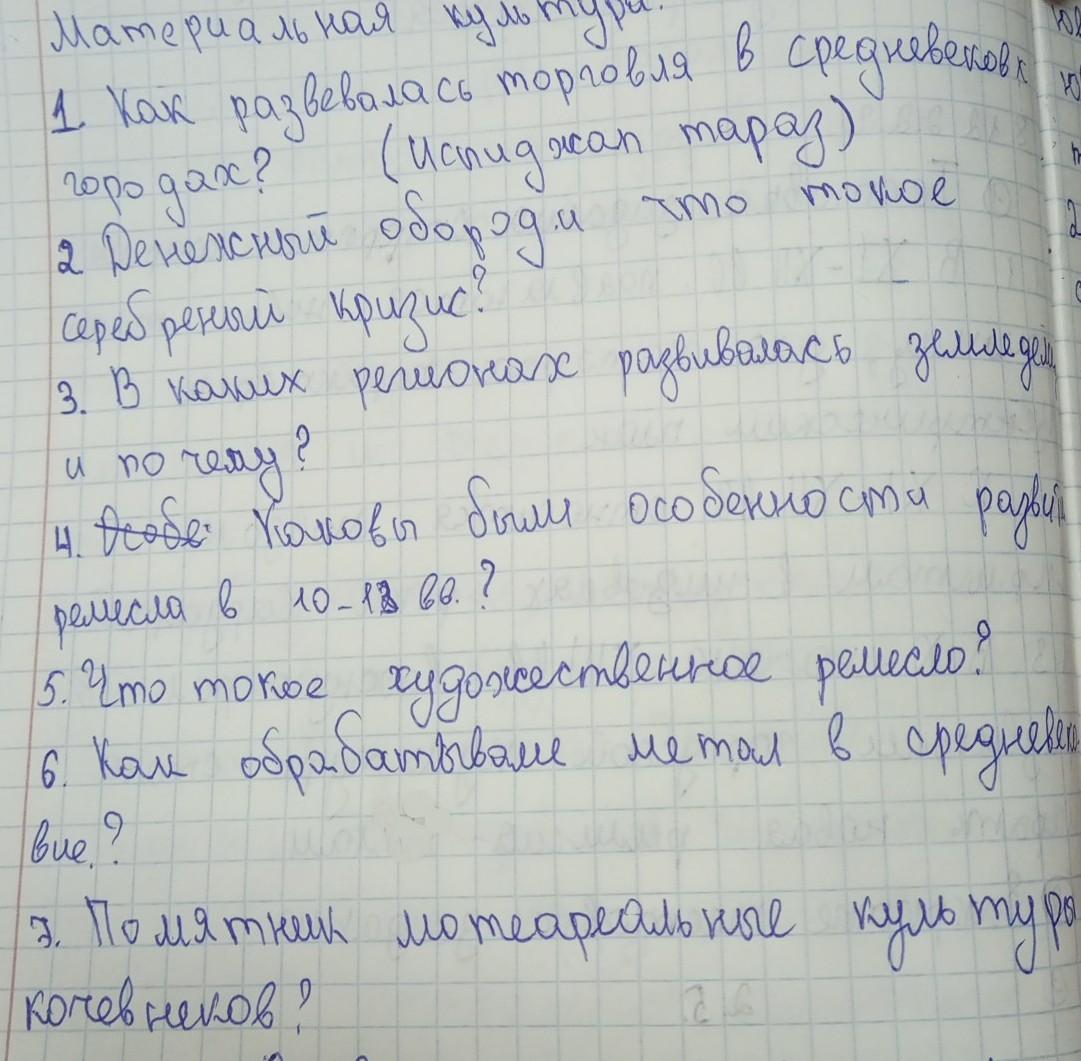 Материальная культура.
1. Как развевалась торговля в средневековых
городах? (Испиджап тараз)
2 Денежный обород.и что токое
серебреный кризис?
3. В каких регионах развивалась земледели
и почему?
4. Каковы были особенности разви
ремесла в 10-12 вв.?
5. Что токое художественное ремесло?
6. Как обрабатывале метал в средневеко
вие.?
7. Помятник мотеареальные культуры
кочевнеков?